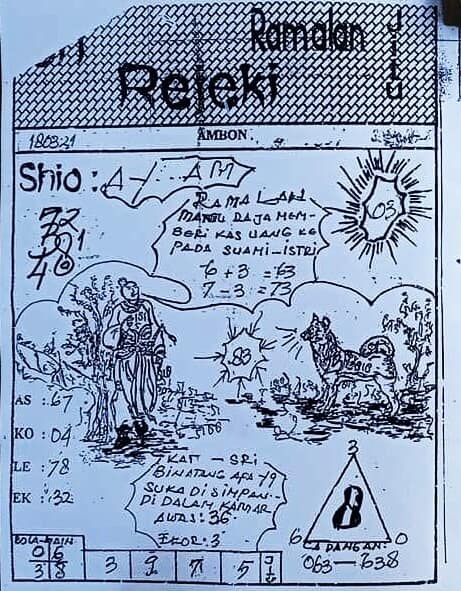 Ramalan
JITU
Rejeki
180321
AMBON
Shio : A-YAM
RAMALAN
MANTU RAJA MEM-
BERI KAS UANG KE
PADA SUAMI-ISTRI
6 + 3 = 63
7 - 3 = 73
63
83
AS : 67
KO : 04
LE : 78
EK : 32
- SRI
BINATANG APA YG
SUKA DI SIMPAN
DI DALAM KAMAR
AWAS: 36
EKOR: 3
3
8
6
0
CADANGAN:
063-638
BOLA-MAIN
0 6
3 8
3 9 7 5
JITU